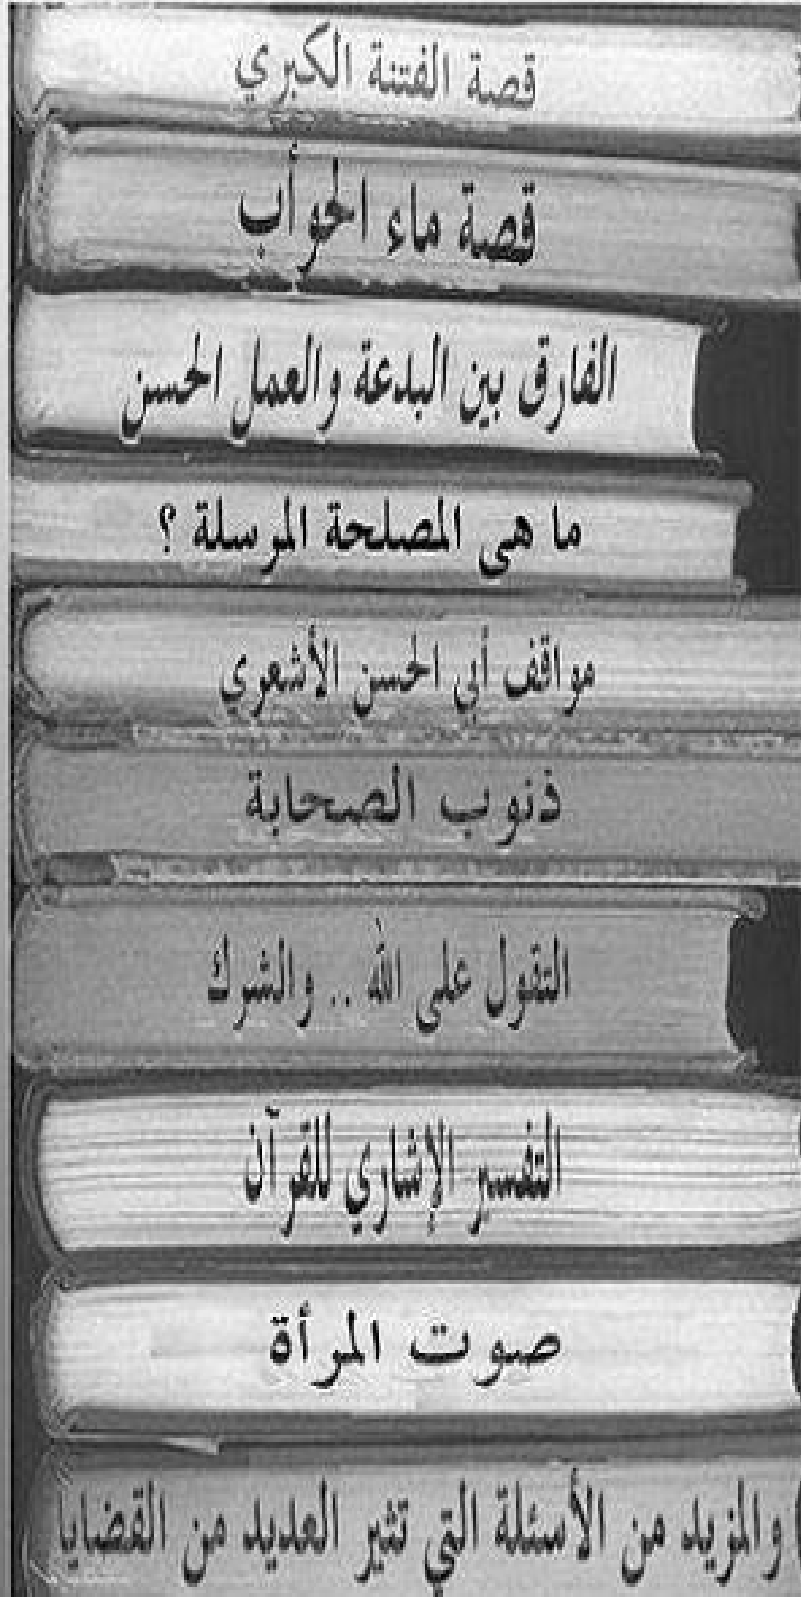 قصة الفتنة الكبري
قصة ماء الحوأب
الفارق بين البدعة والعمل الحسن
ما هى المصلحة المرسلة ؟
مواقف أبي الحسن الأشعري
ذنوب الصحابة
التقول على الله .. والشرك
التفسير الإشاري للقرآن
صوت المرأة
والمزيد من الأسئلة التي تثير العديد من القضايا